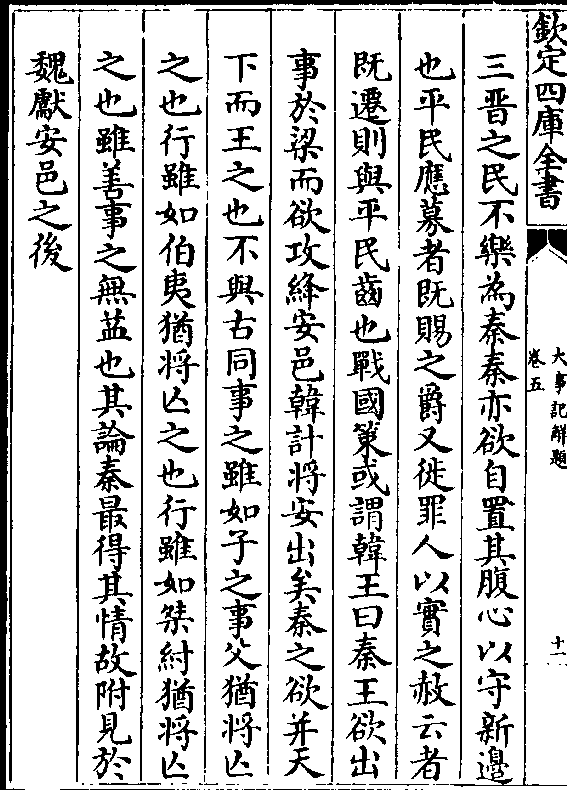 欽定四庫全書
大事記解題
卷五
十一
三晋之民不樂為秦秦亦欲自置其腹心以守新邊
也平民應募者既賜之爵又徙罪人以實之赦云者
既遷則與平民齒也戰國策或謂韓王曰秦王欲出
事於梁而欲攻絳安邑韓計將安出矣秦之欲并天
下而王之也不與古同事之雖如子之事父猶將亾
之也行雖如伯夷猶將亾之也行雖如桀紂猶將亾
之也雖善事之無益也其論秦最得其情故附見於
魏獻安邑之後